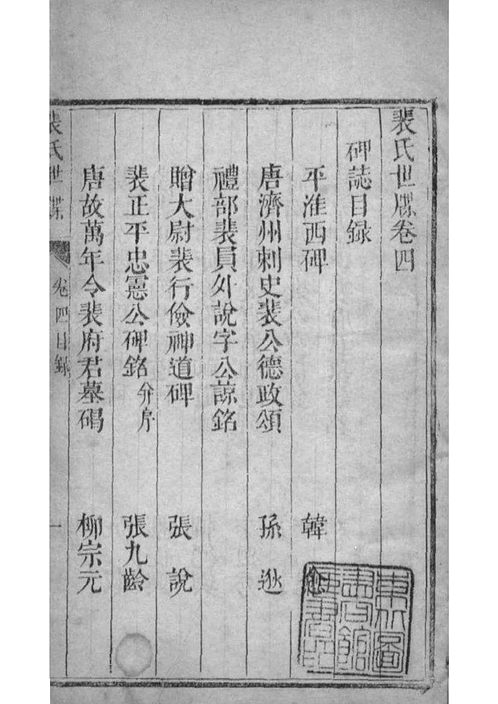 裴氏世牒卷四
碑誌目録
平淮西碑 韓愈
唐濟州刺史裴公德政頌 孫逖
禮部裴員外說字公諒銘
贈大尉裴行儉神道碑 張說
裴正平忠憲公碑銘 分序 張九齡
唐故萬年令裴府君墓碣 柳宗元
裴氏世牒 卷四目録 一